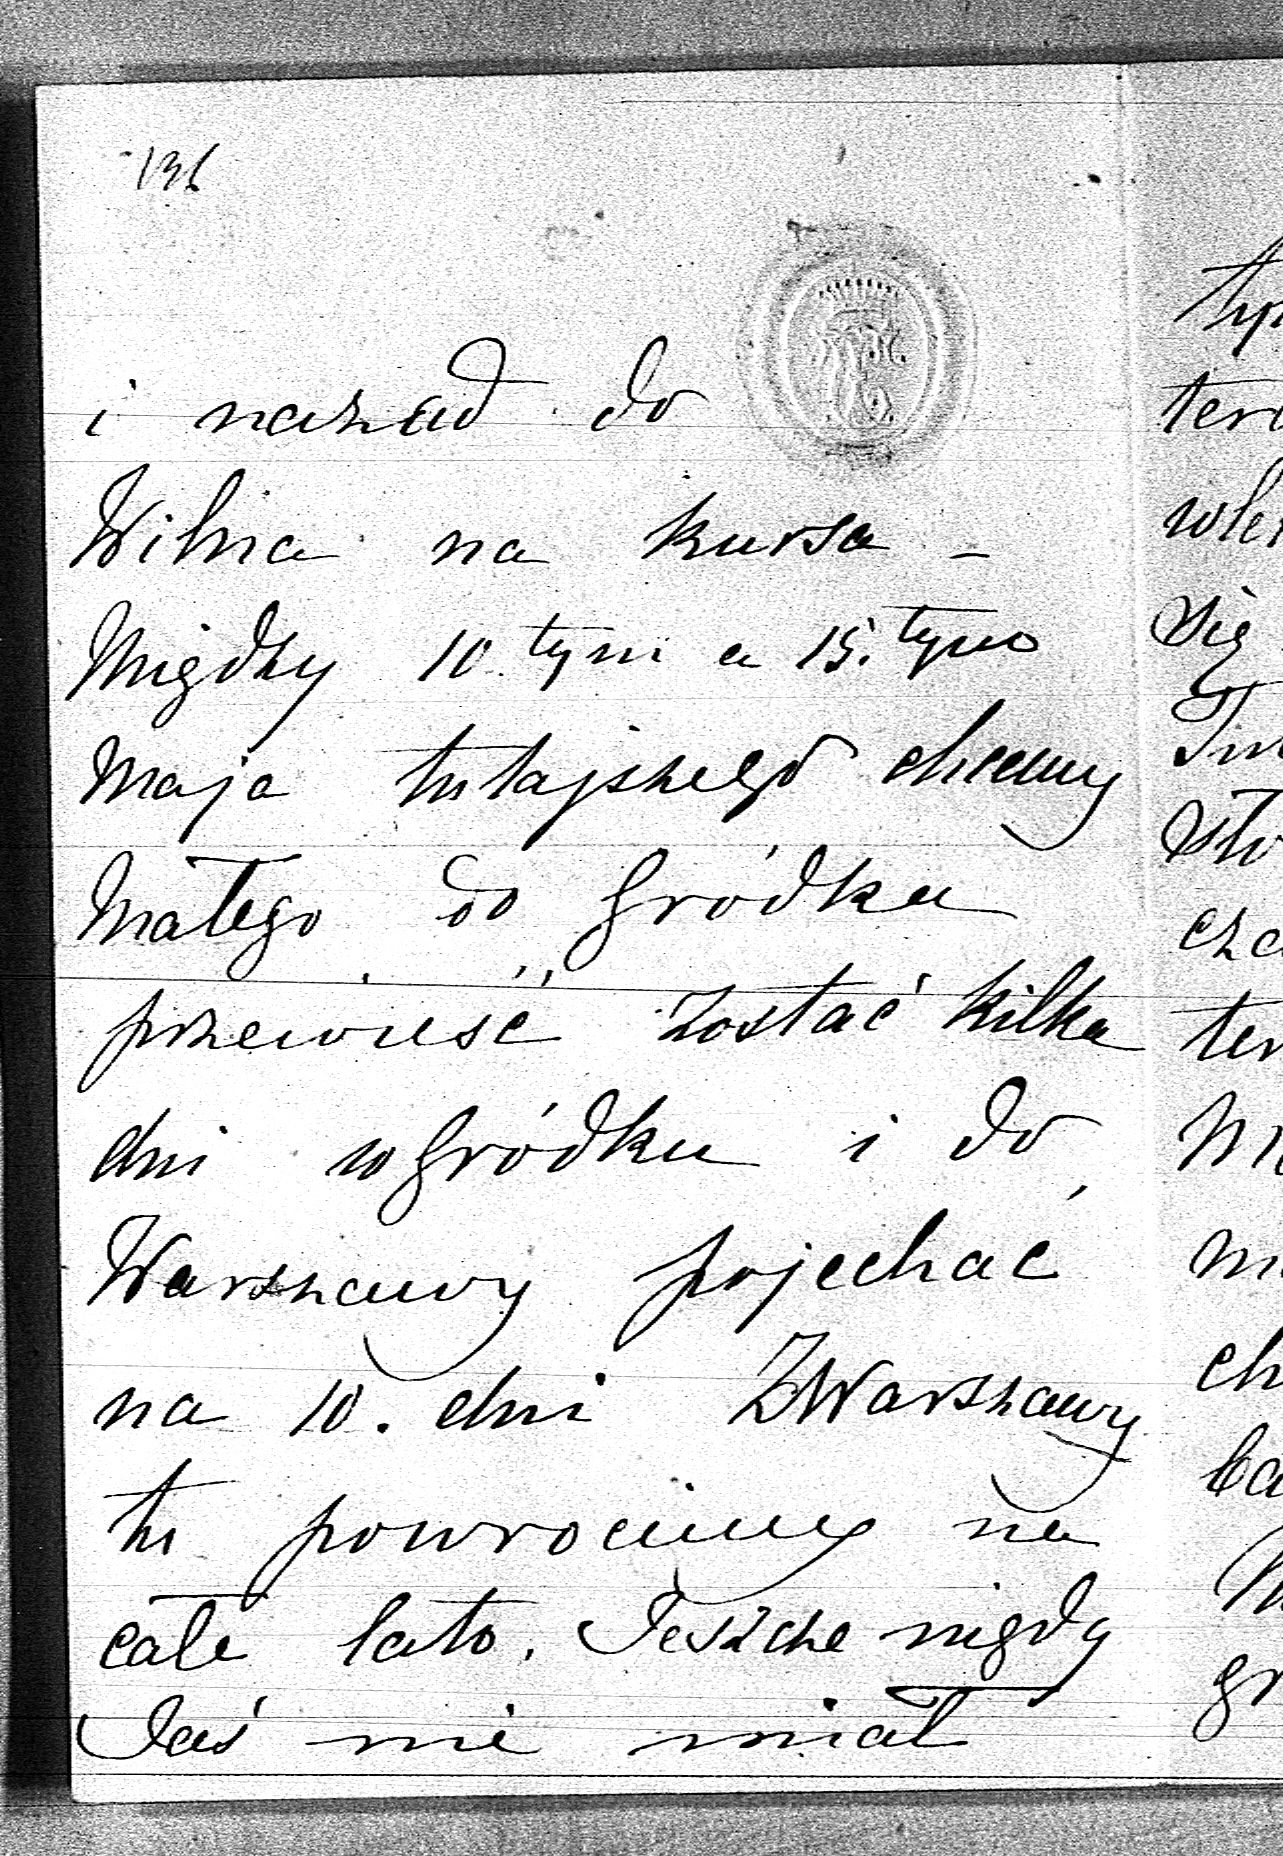 136
i nazad do
Wilna na kursa –
Między 10. tym a 15. tym
Maja tutajszego chcemy
Małego do Gródka
przewieść zostać kilka
dni w Gródku i do
Warszawy pojechać
na 10. dni Z Warszawy
tu powrocimy na
całe lato. Jeszcze nigdy
Jaś nie miał